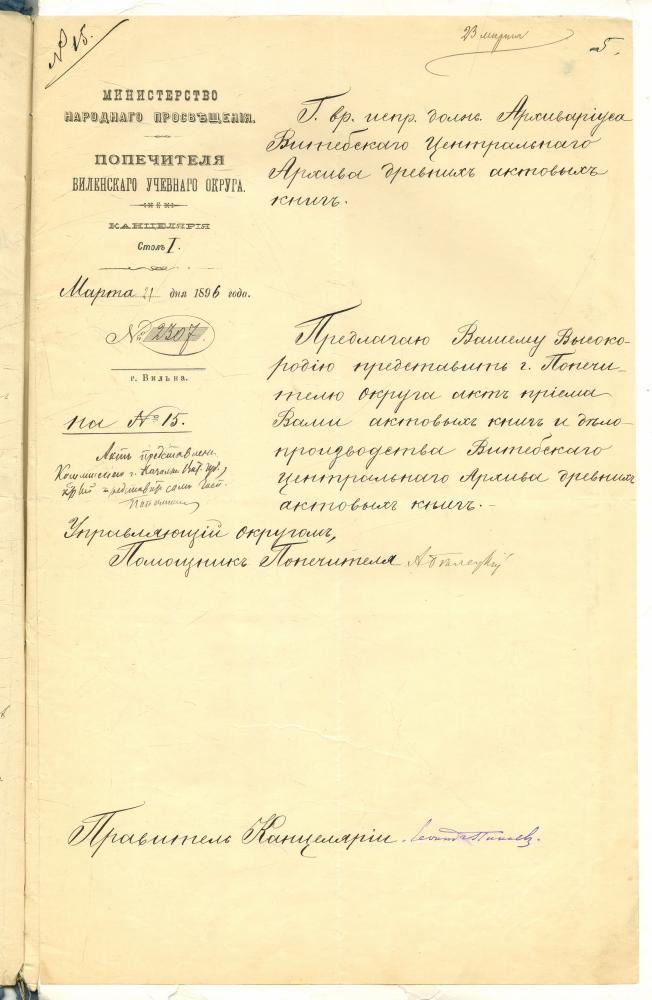 № 15.
23 марта
5.
МИНИСТЕРСТВО
НАРОДНАГО ПРОСВѢЩЕНІЯ.
ПОПЕЧИТЕЛЯ
ВИЛЕНСКАГО УЧЕБНАГО ОКРУГА.
КАНЦЕЛЯРІЯ
Столъ I.
Марта 21 дня 1896 года.
№ 2307.
г. Вильна.
на № 15.
Актъ представленъ
Коммиссіею г. Начальн. Вит. губ.,
представитъ
Г. вр. испр. должн. Архиваріуса
Витебскаго Центральнаго
Архива древнихъ актовыхъ
книгъ.
Предлагаю Вашему Высоко-
родію представить г. Попечи-
телю округа актъ пріема
Вами актовыхъ книгъ и дѣло-
производства Витебскаго
Центральнаго Архива древнихъ
актовыхъ книгъ.-
Управляющій округомъ,
Помощникъ Попечителя А Бѣлецкій
Правитель Канцеляріи